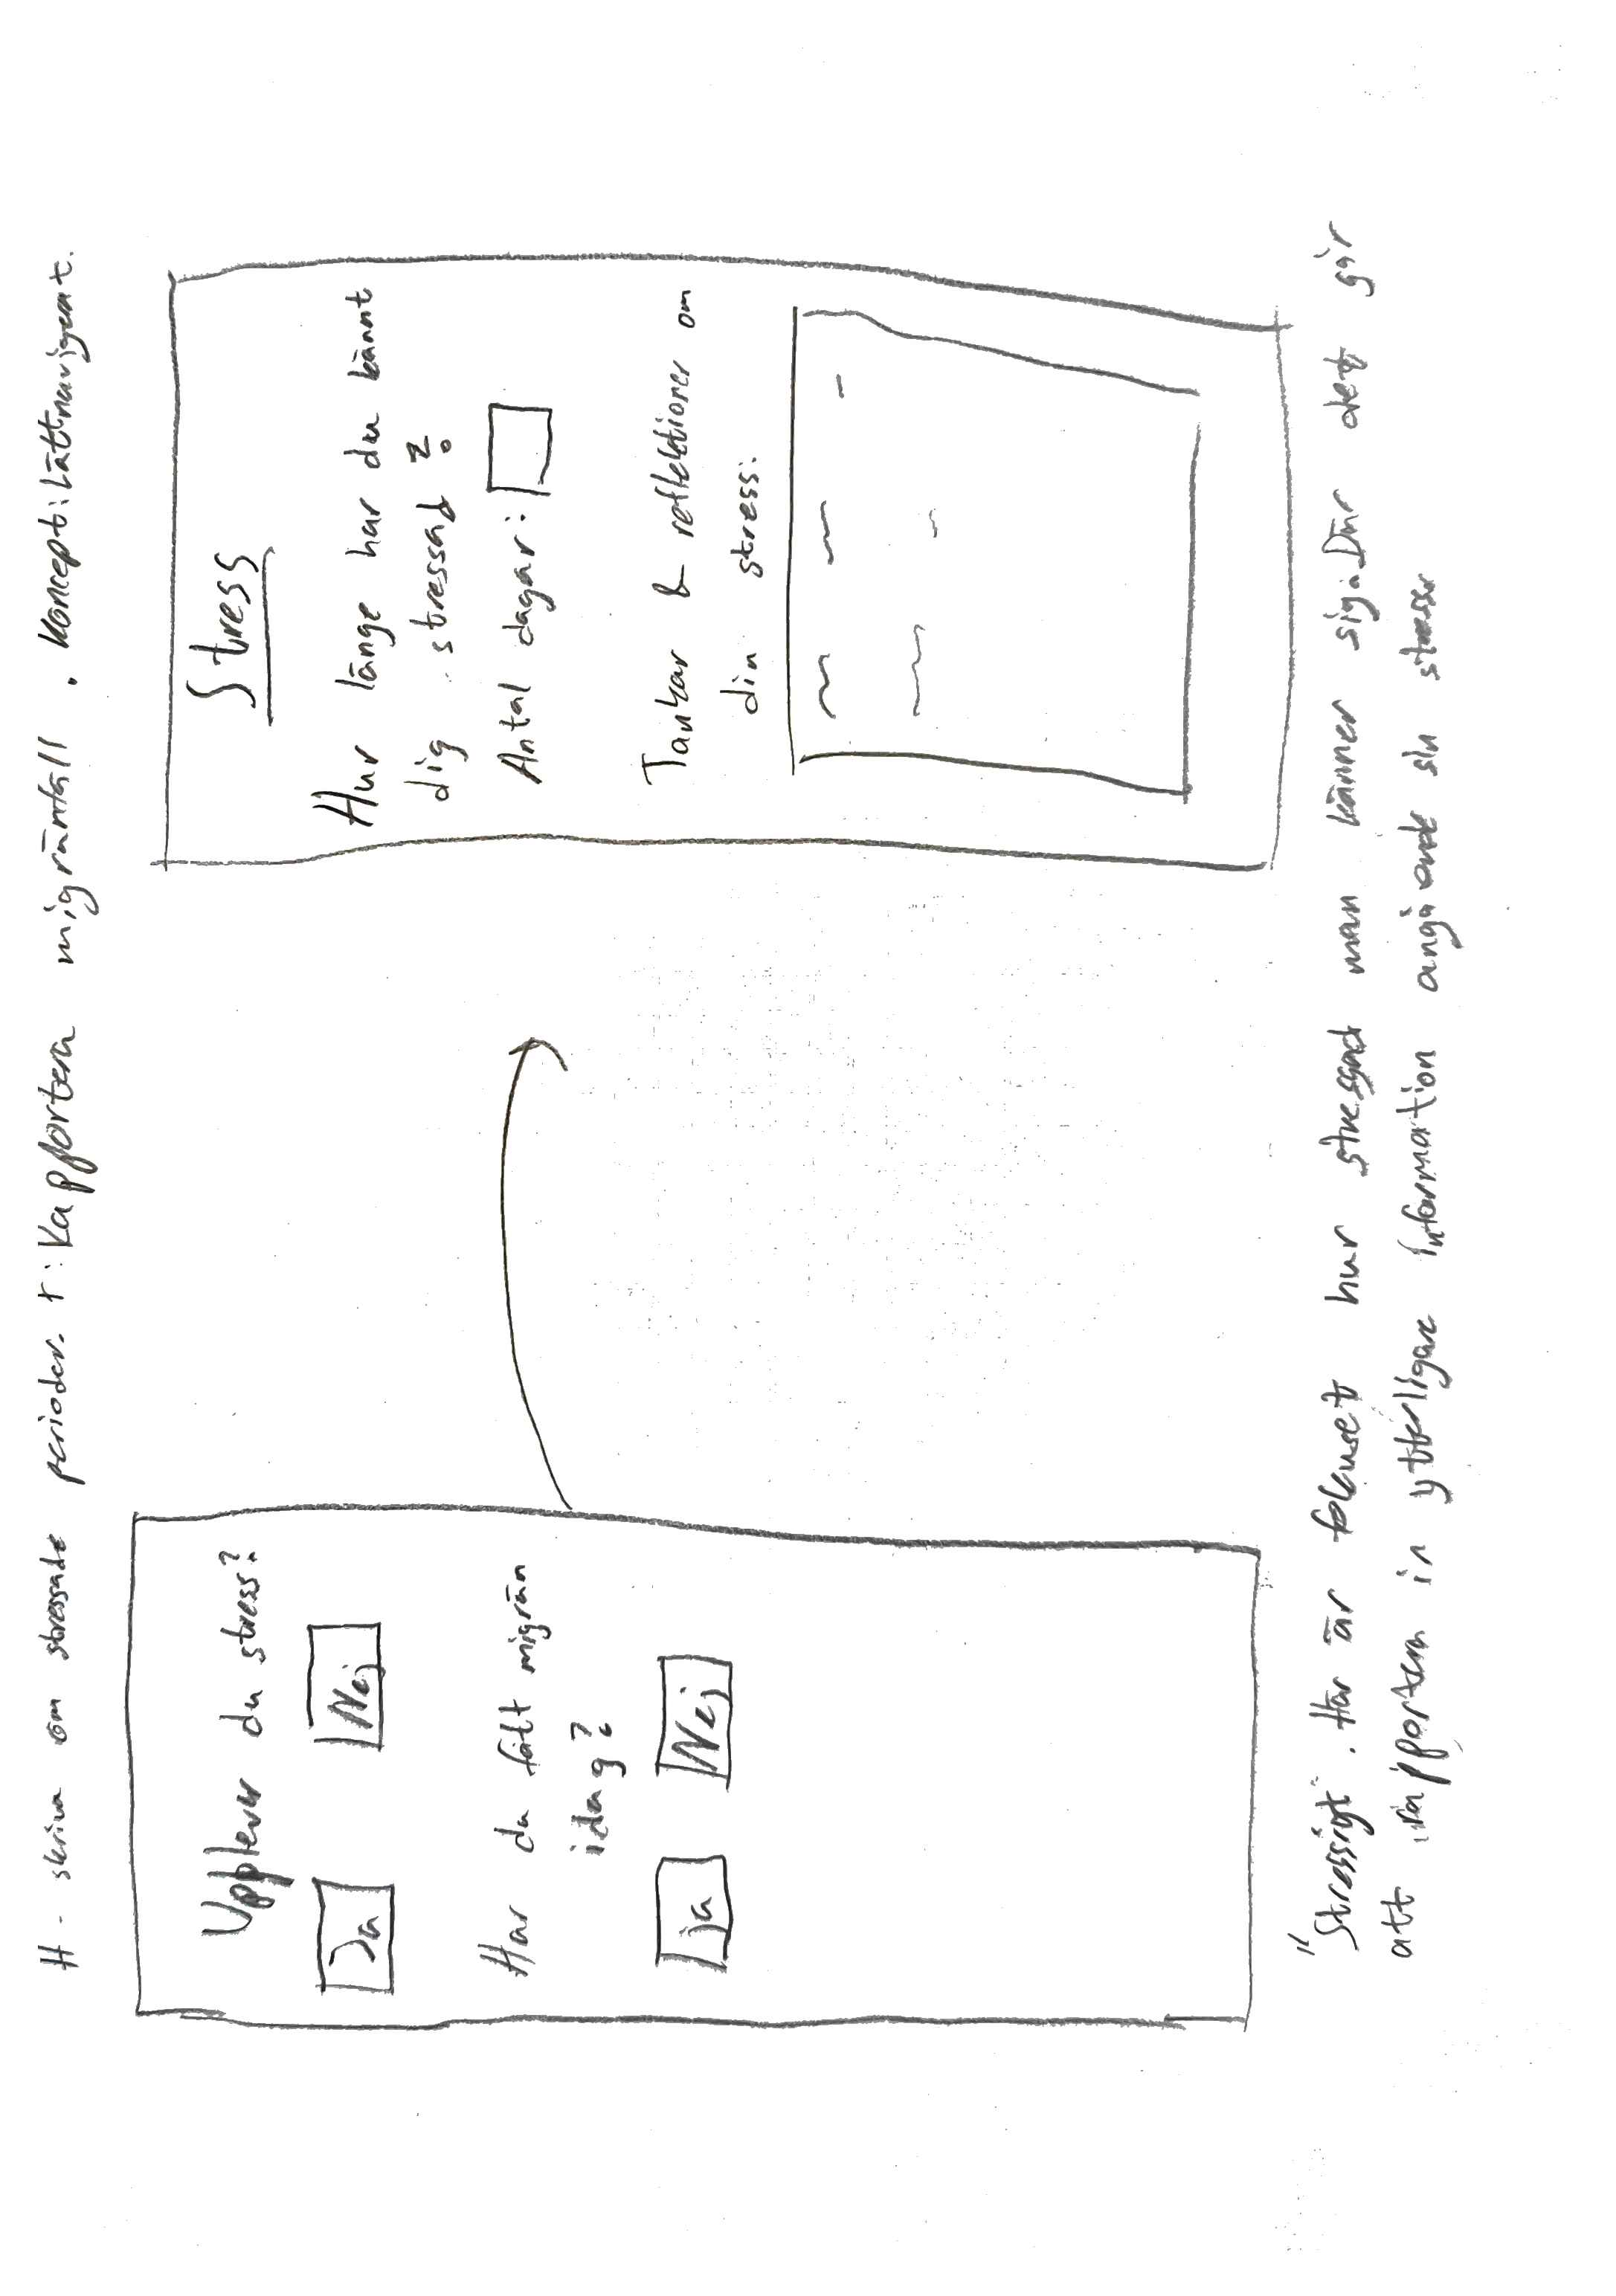 H - skriva om stressade perioder. t: Rapportera migränfall . Koncept: Lättnavigerat.
Upplever du stress?
Ja Nej
Har du fått migrän
idag?
ja Nej
Stress
Hur länge har du känt
dig stressad?
Antal dagar:
Tankar & reflektioner om
din stress:
"Stressigt". Här är fokuset hur stressad man känner sig. Där det går
att rapportera in ytterligare information angående sin stress